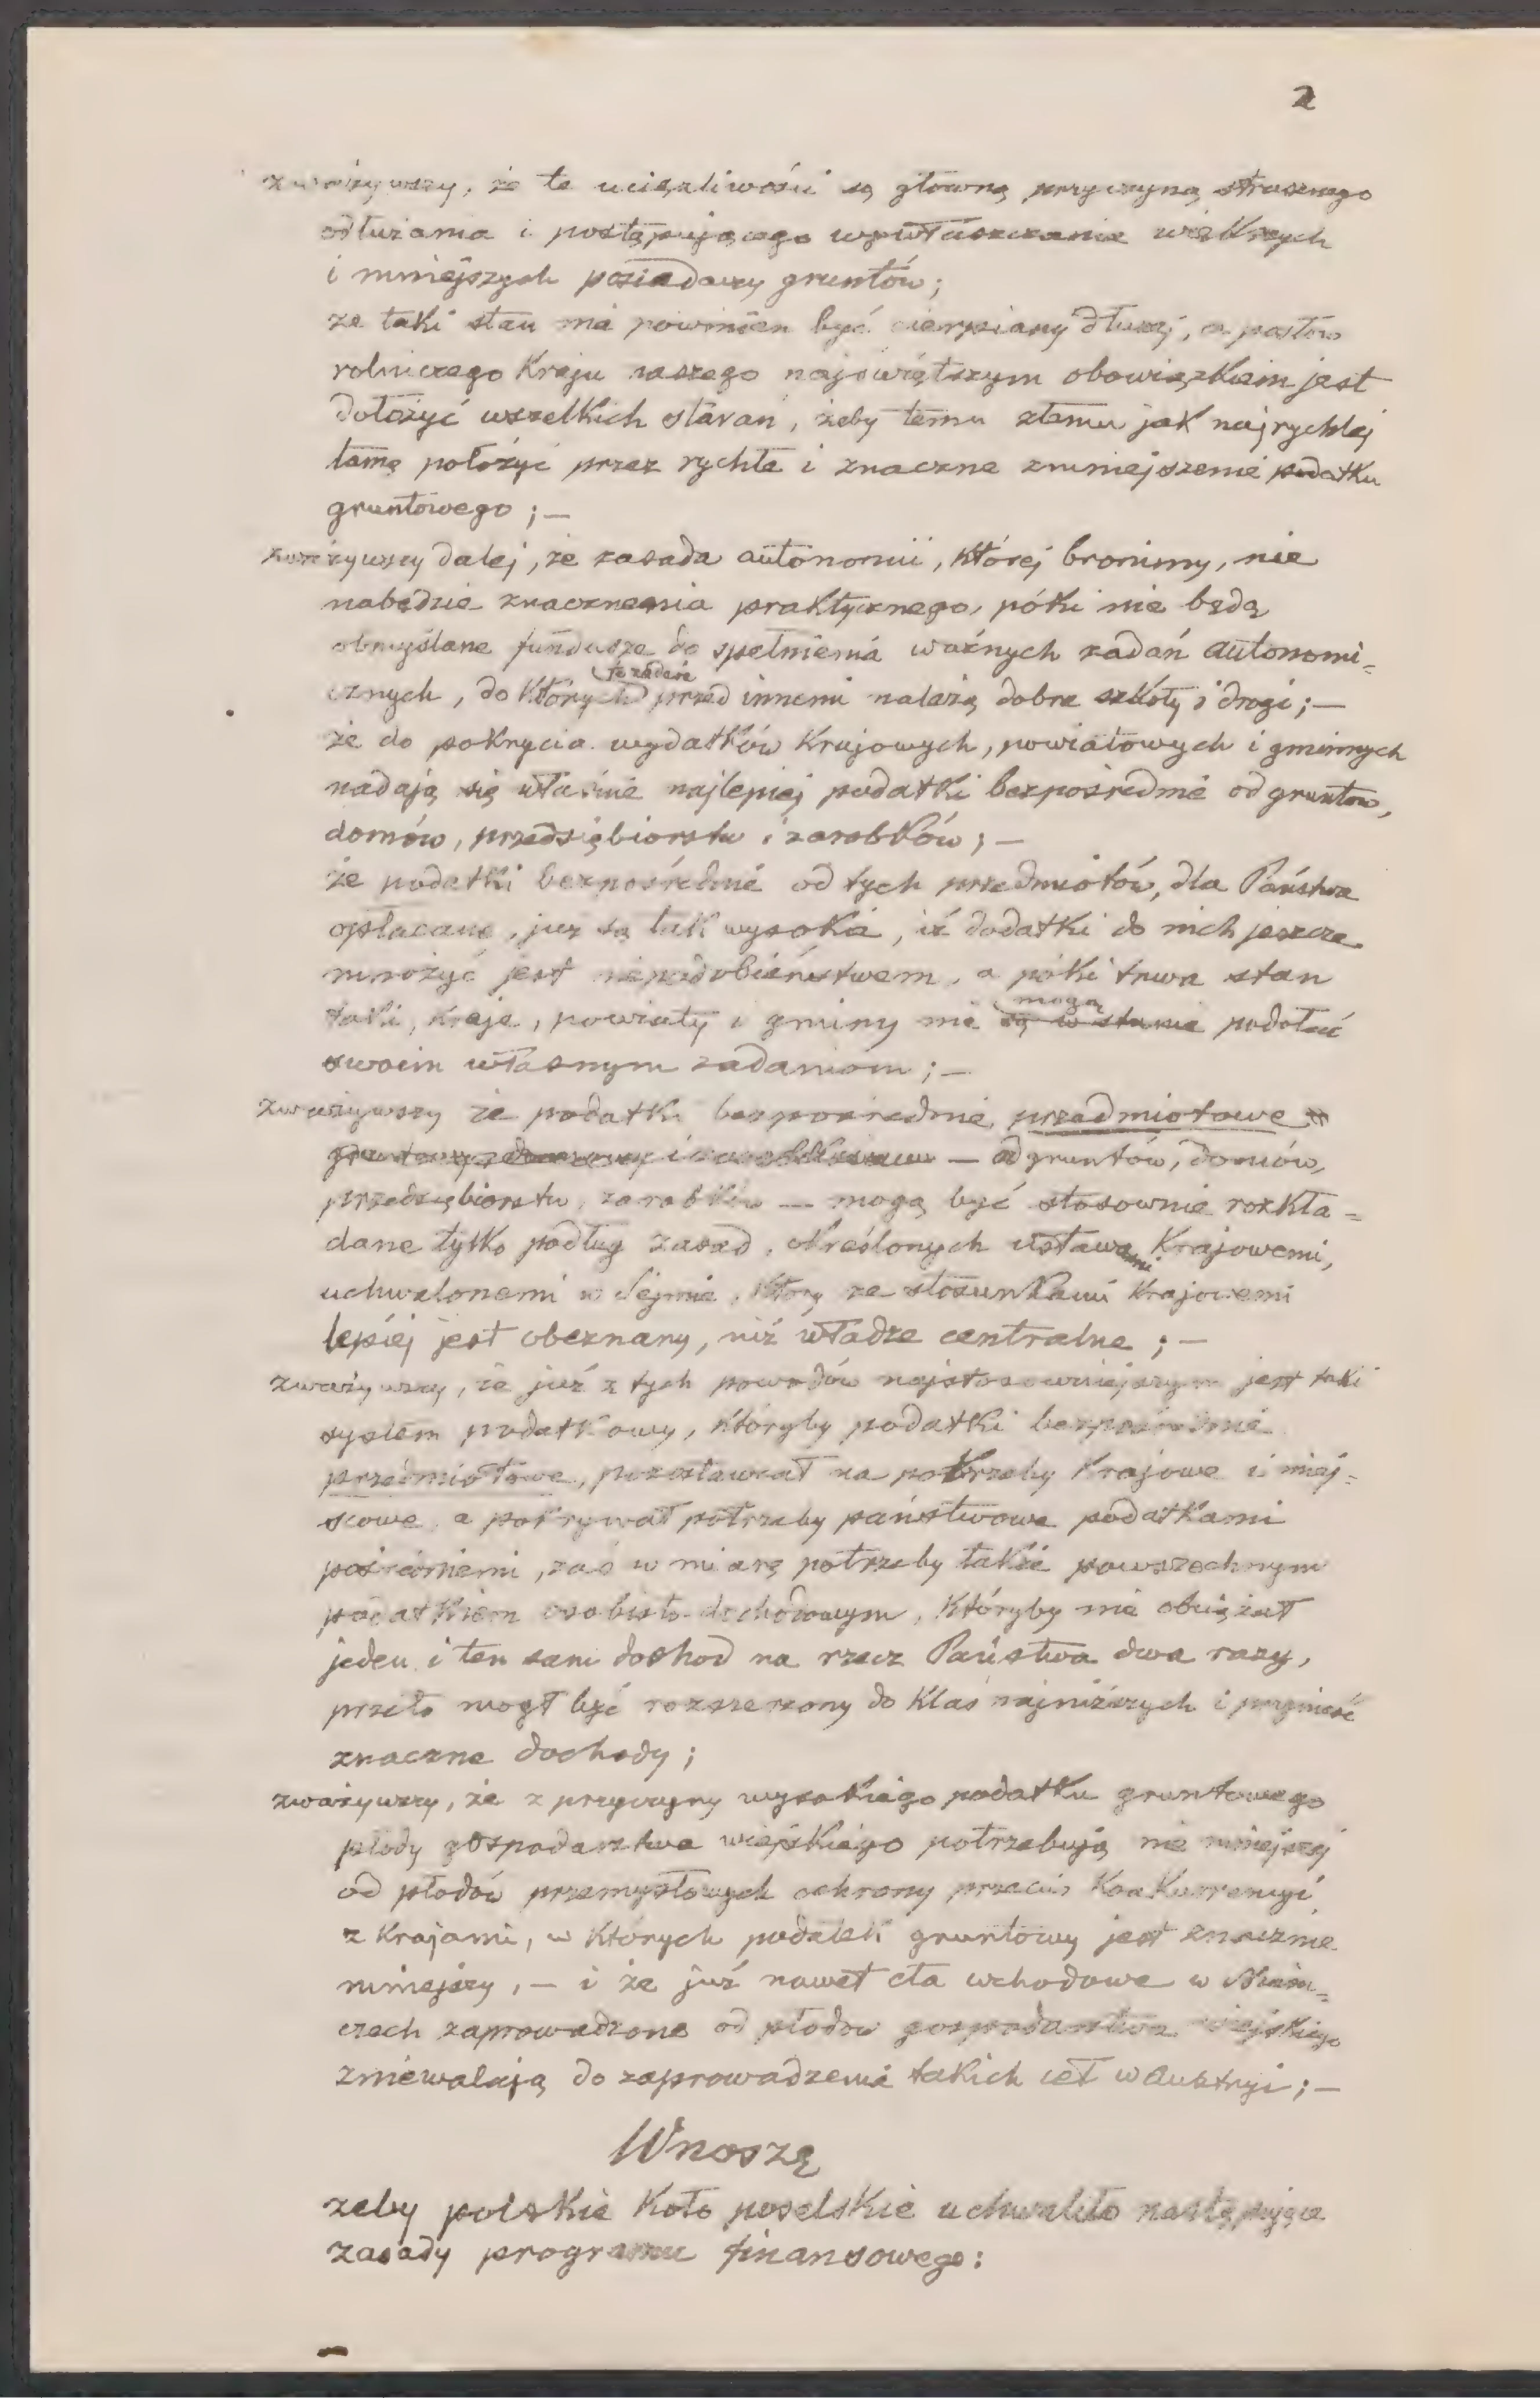 2
zważywszy, że te uciążliwości są główną przyczyną strasznego
odłużania i postępującego wywłaszczania większych
i mniejszych posiadaczy gruntów;
że taki stan nie powinien być cierpiany dłużej, a posłów
rolniczego Kraju naszego najświętszym obowiązkiem jest
dołożyć wszelkich starań, żeby temu złemu jak najrychlej
tamę położyć przez rychłe i znaczne zmniejszenie podatku
gruntowego; —
zważywszy dalej, że zasada autonomii, której bronimy, nie
nabędzie znaczenia praktycznego, póki nie będą
obmyślane fundusze do spełnienia ważnych zadań autonomi-
cznych, do których przed innemi należą dobre szkoły i drogi; —
że do pokrycia wydatków Krajowych, powiatowych i gminnych
nadają się właśnie najlepiej podatki bezpośrednie od gruntów,
domów, przedsiębiorstw i zarobków; —
że podatki bezpośrednie od tych przedmiotów, dla Państwa
opłacane, już są tak wysokie, iż dodatki do nich jeszcze
mnożyć jest niepodobieństwem, a póki trwa stan
taki, Kraje, powiaty i gminy nie są w stanie mogą podołać
swoim własnym zadaniom; —
zważywszy że podatki bezpośrednie przedmiotowe
— od gruntów, domów,
przedsiębiorstw, zarobków — mogą być stosownie rozkła-
dane tylko podług zasad, określonych ustawami Krajowemi,
uchwalonemi w Sejmie, który ze stosunkami Krajowemi
lepiej jest obeznany, niż władze centralne; —
zważywszy, że już z tych powodów najstosowniejszym jest taki
system podatkowy, któryby podatki bezpośrednie
przedmiotowe, pozostawiał na potrzeby Krajowe i miej-
scowe, a pokrywał potrzeby państwowe podatkami
pośredniemi, zaś w miarę potrzeby także powszechnym
podatkiem osobisto-dochodowym, któryby nie obciążał
jeden i ten sam dochod na rzecz Państwa dwa razy,
przeto mógł być rozszerzony do Klas najniższych i przynieść
znaczne dochody;
zważywszy, że z przyczyny wysokiego podatku gruntowego
płody gospodarstwa wiejskiego potrzebują nie mniejszej
od płodów przemysłowych ochrony przeciw Konkurencyi
z Krajami, w których podatek gruntowy jest znacznie
mniejszy, — i że już nawet cła wchodowe w Niem-
czech zaprowadzone od płodów gospodarstwa wiejskiego
zniewalają do zaprowadzenia takich ceł w Austryi; —
Wnoszę
żeby polskie Koło poselskie uchwaliło następujące
zasady programu finansowego: